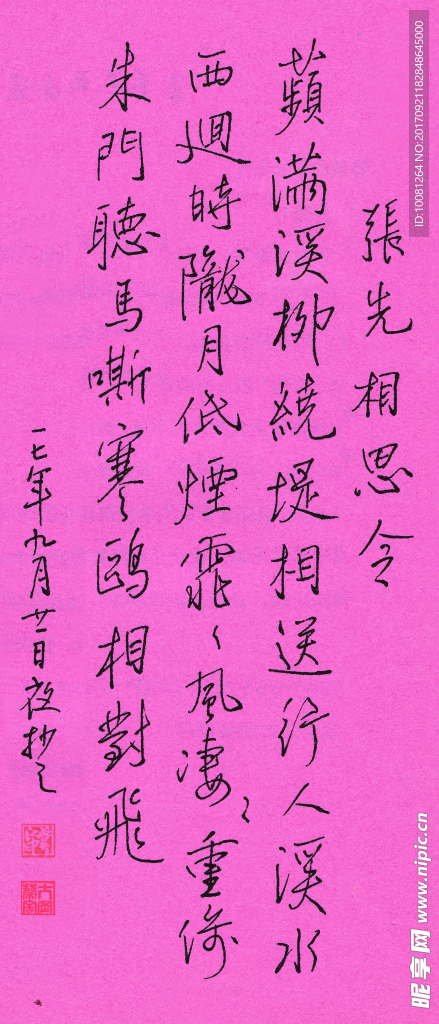 張先相思令
蘋滿溪柳繞堤相送行人溪水
西迴時隴月低煙霏々風凄々重倚
朱門聽馬嘶寒鷗相對飛
一七年九月廿一日夜抄之
ID:10081264 NO:20170921182848645000
昵享网 www.nipic.cn